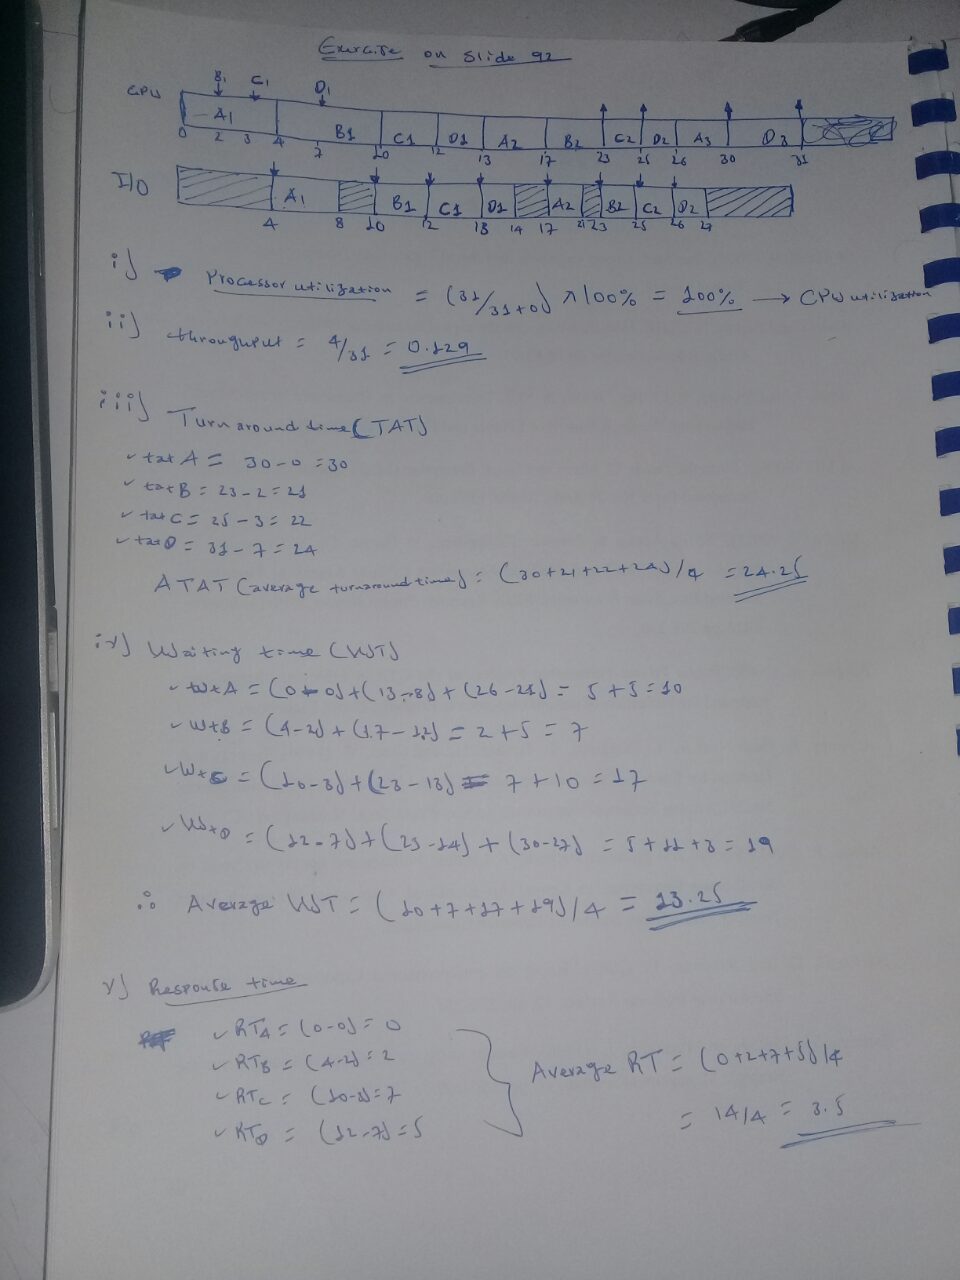 Exercise on Slide 92
B1 C1 D1
CPU A1 B1 C1 D1 A2 B2 C2 D2 A3 D3
0 2 3 4 7 10 12 13 17 23 25 26 30 31
I/O A1 B1 C1 D1 A2 B2 C2 D2
4 8 10 12 13 14 17 21 23 25 26 27
i) Processor utilization = (31/31+0) × 100% = 100% → CPU utilization
ii) throughput = 4/31 = 0.129
iii) Turnaround time (TAT)
✓ tat A = 30-0 = 30
✓ tat B = 23-2 = 21
✓ tat C = 25-3 = 22
✓ tat D = 31-7 = 24
ATAT (average turnaround time) = (30+21+22+24)/4 = 24.25
iv) Waiting time (WT)
✓ wt A = (0-0)+(13-8)+(26-21) = 5+5=10
✓ wt B = (4-2)+(17-12) = 2+5 = 7
✓ wt C = (10-3)+(23-13) = 7+10 = 17
✓ wt D = (12-7)+(25-14)+(30-27) = 5+11+3 = 19
∴ Average WT = (10+7+17+19)/4 = 13.25
v) Response time
✓ RTA = (0-0) = 0
✓ RTB = (4-2) = 2
✓ RTC = (10-3) = 7
✓ RTD = (12-7) = 5
Average RT = (0+2+7+5)/4
= 14/4 = 3.5